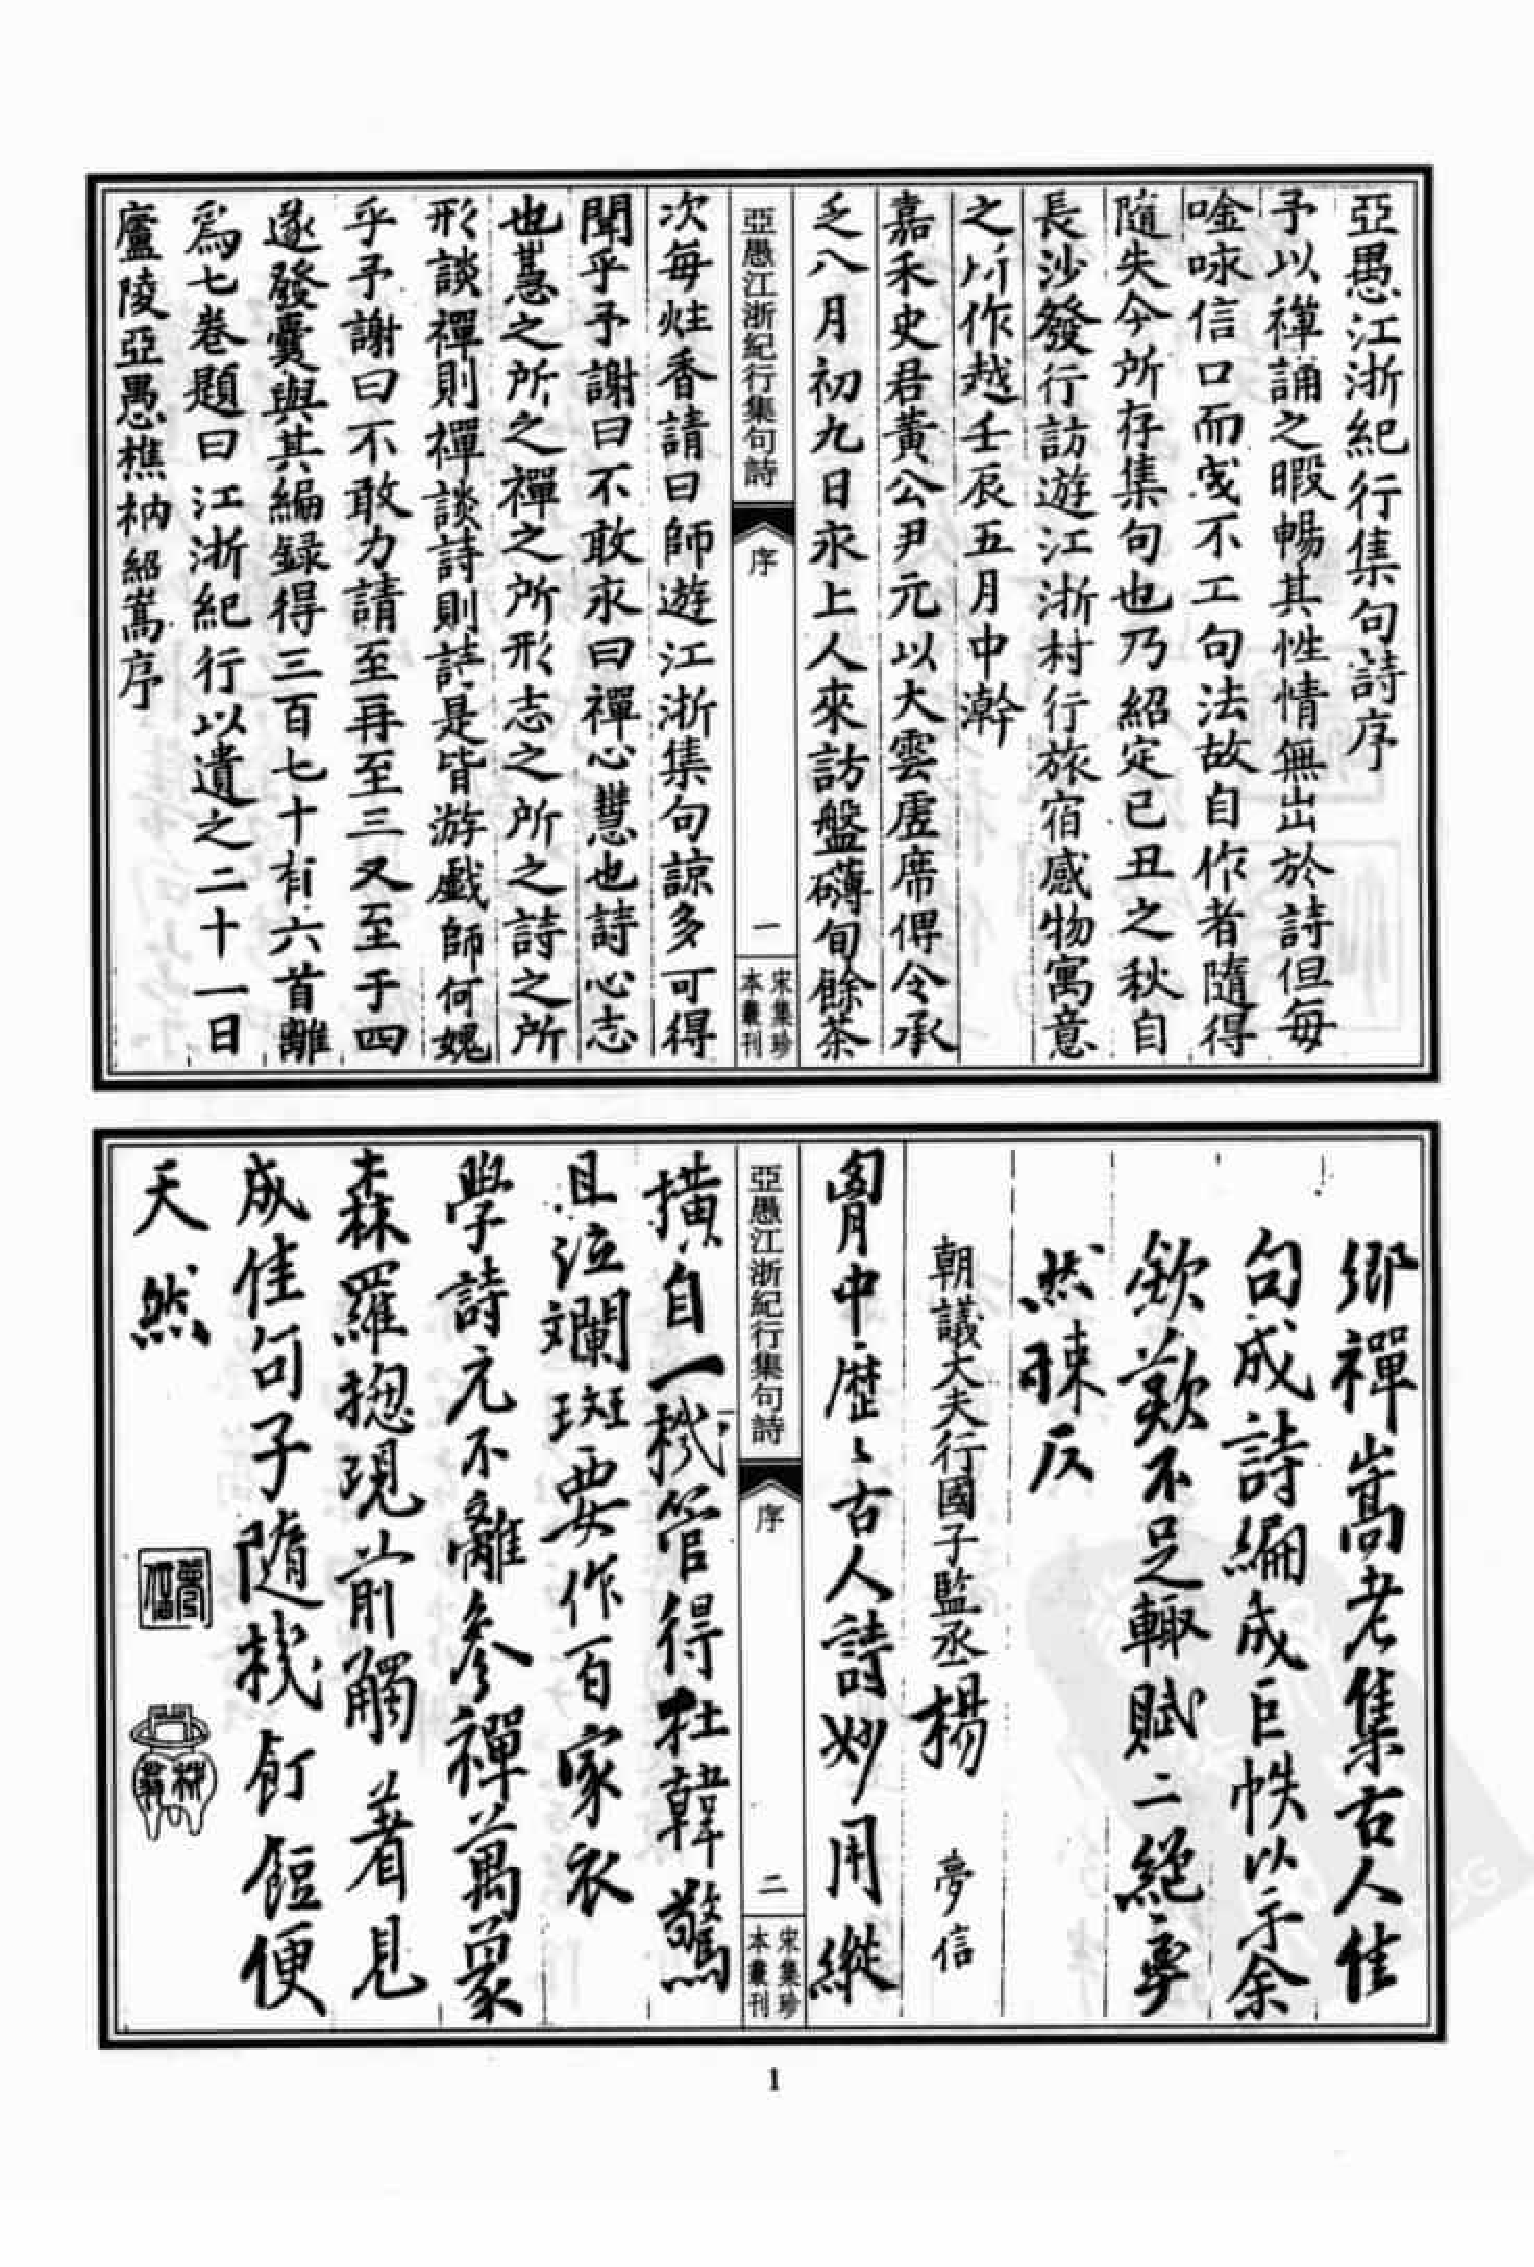 亞愚江浙紀行集句詩序
予以禪誦之暇暢其性情無出於詩但每
唫咏信口而成不工句法故自作者隨得
隨失今所存集句也乃紹定已丑之秋自
長沙發行訪遊江浙村行旅宿感物寓意
之所作越壬辰五月中澣
嘉禾史君黃公尹元以大雲虛席俾令承
乏八月初九日永上人來訪盤礴旬餘茶
亞愚江浙紀行集句詩
序
一
宋集珍
本叢刊
次每炷香請曰師遊江浙集句諒多可得
聞乎予謝曰不敢永曰禪心慧也詩心志
也慧之所之禪之所形志之所之詩之所
形談禪則禪談詩則詩是皆游戲師何媿
乎予謝曰不敢力請至再至三又至于四
遂發囊與其編録得三百七十有六首離
爲七卷題曰江浙紀行以遺之二十一日
廬陵亞愚樵衲紹嵩序
鄉禪嵩老集古人佳
句成詩編成巨帙以示余
欽歎不足輙賦二絕
然
朝議大夫行國子監丞楊 夢信
胷中歷〻古人詩妙用縱
亞愚江浙紀行集句詩
序
二
宋集珍
本叢刊
橫自一機管得杜韓驚
且泣斕斑要作百家衣
學詩元不離參禪萬象
森羅揔現前觸著見
成佳句子隨機飣餖便
天然
1